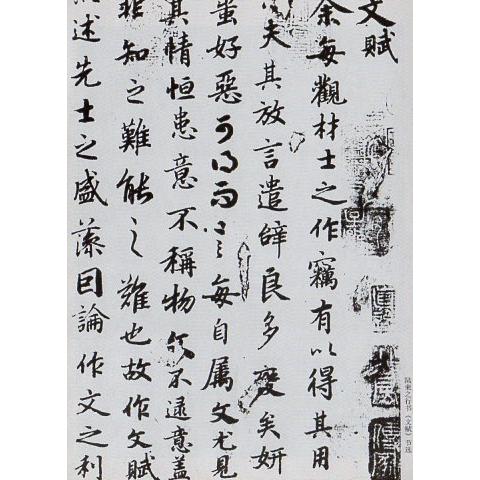 文賦
余每觀材士之作竊有以得其用
心夫其放言遣辭良多變矣妍
蚩好惡可得而言每自属文尤見
其情恒患意不稱物文不逮意盖
非知之難能之難也故作文賦
述先士之盛藻因論作文之利
陆柬之行书《文赋》节选